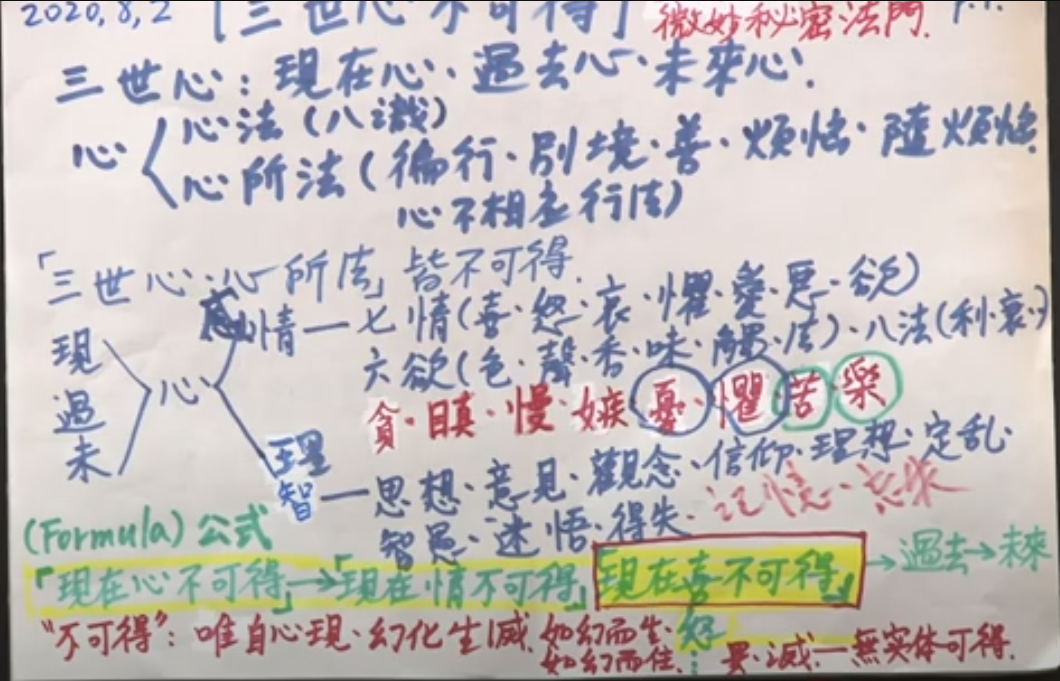 2020,8,2 [三世心不可得] 微妙秘密法門.
三世心：現在心、過去心、未來心.
心
心法(八識)
心所法(徧行·別境·善·煩惱·隨煩惱.
心不相應行法)
「三世心·心所法」皆不可得.
現
過
未
心
感情—七情(喜·怒·哀·懼·愛·惡·欲)
六欲(色·聲·香·味·觸·法)·八法(利·衰·)
貪·瞋·慢·嫉·憂·懼·苦·樂
理智—思想·意見·觀念·信仰·理想·定乱·
智愚·迷悟·得失·記憶·忘失
(Formula) 公式
「現在心不可得」→「現在情不可得」「現在喜不可得」→過去→未來
怒
"不可得"：唯自心現·幻化生滅.如幻而生·
如幻而住.⋮異·滅.—無实体可得.